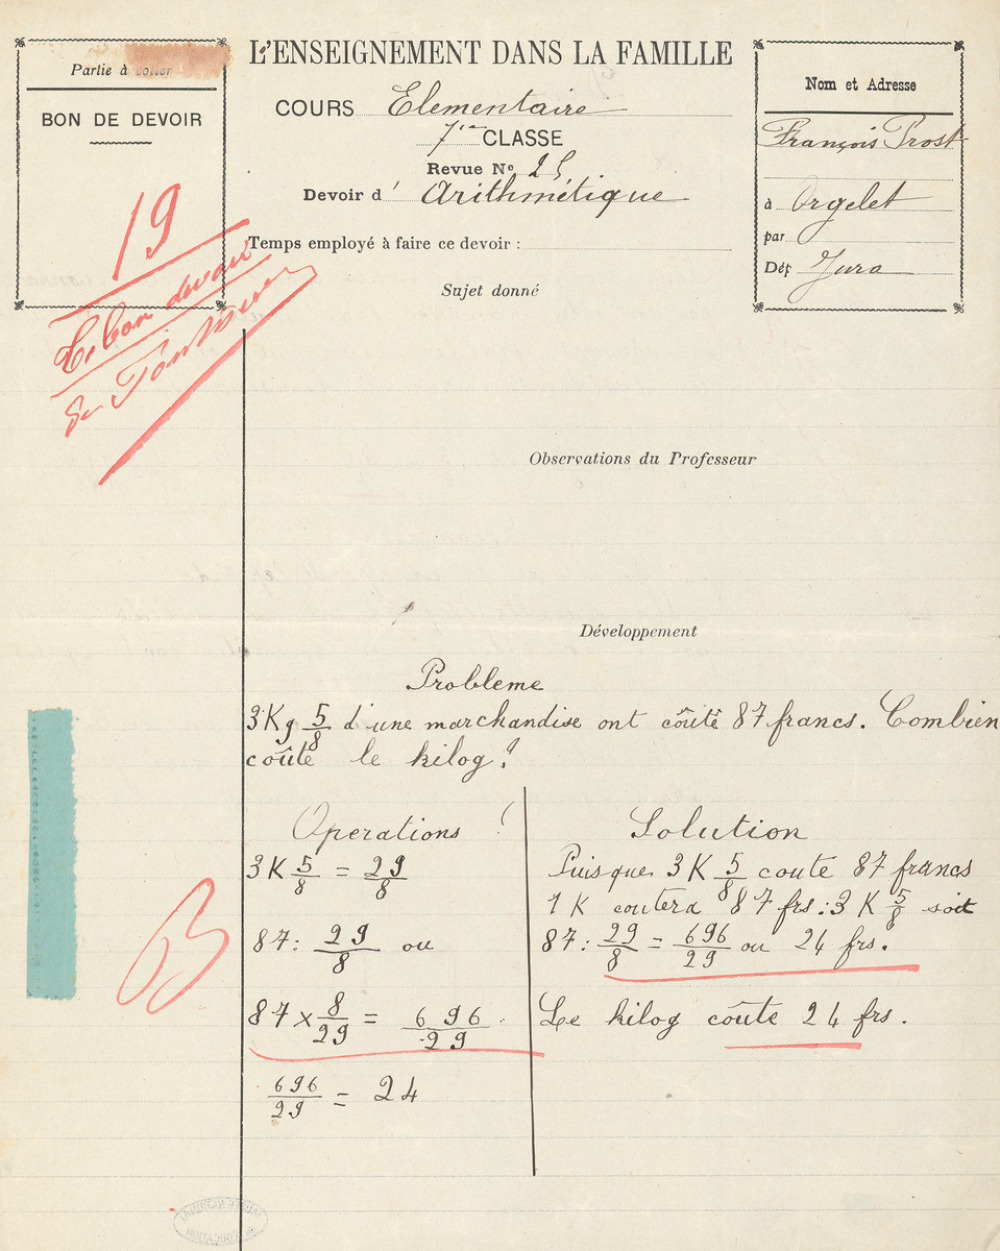 Partie à coller
BON DE DEVOIR
19
Bon devoir
L'ENSEIGNEMENT DANS LA FAMILLE
COURS Elementaire
7ie CLASSE
Revue No 25
Devoir d' Arithmétique
Temps employé à faire ce devoir :
Nom et Adresse
François Prost
à Orgelet
par
Dép Jura
Sujet donné
Observations du Professeur
Développement
Probleme
3Kg 5/8 d'une marchandise ont côuté 87 francs. Combien
coûte le kilog ?
Operations
3K 5/8 = 29/8
87 : 29/8 ou
87 × 8/29 = 696/29
696/29 = 24
Solution
Puisque 3K 5/8 coute 87 francs
1K coutera 87 frs : 3K 5/8 soit
87 : 29/8 = 696/29 ou 24 frs.
Le kilog coûte 24 frs.